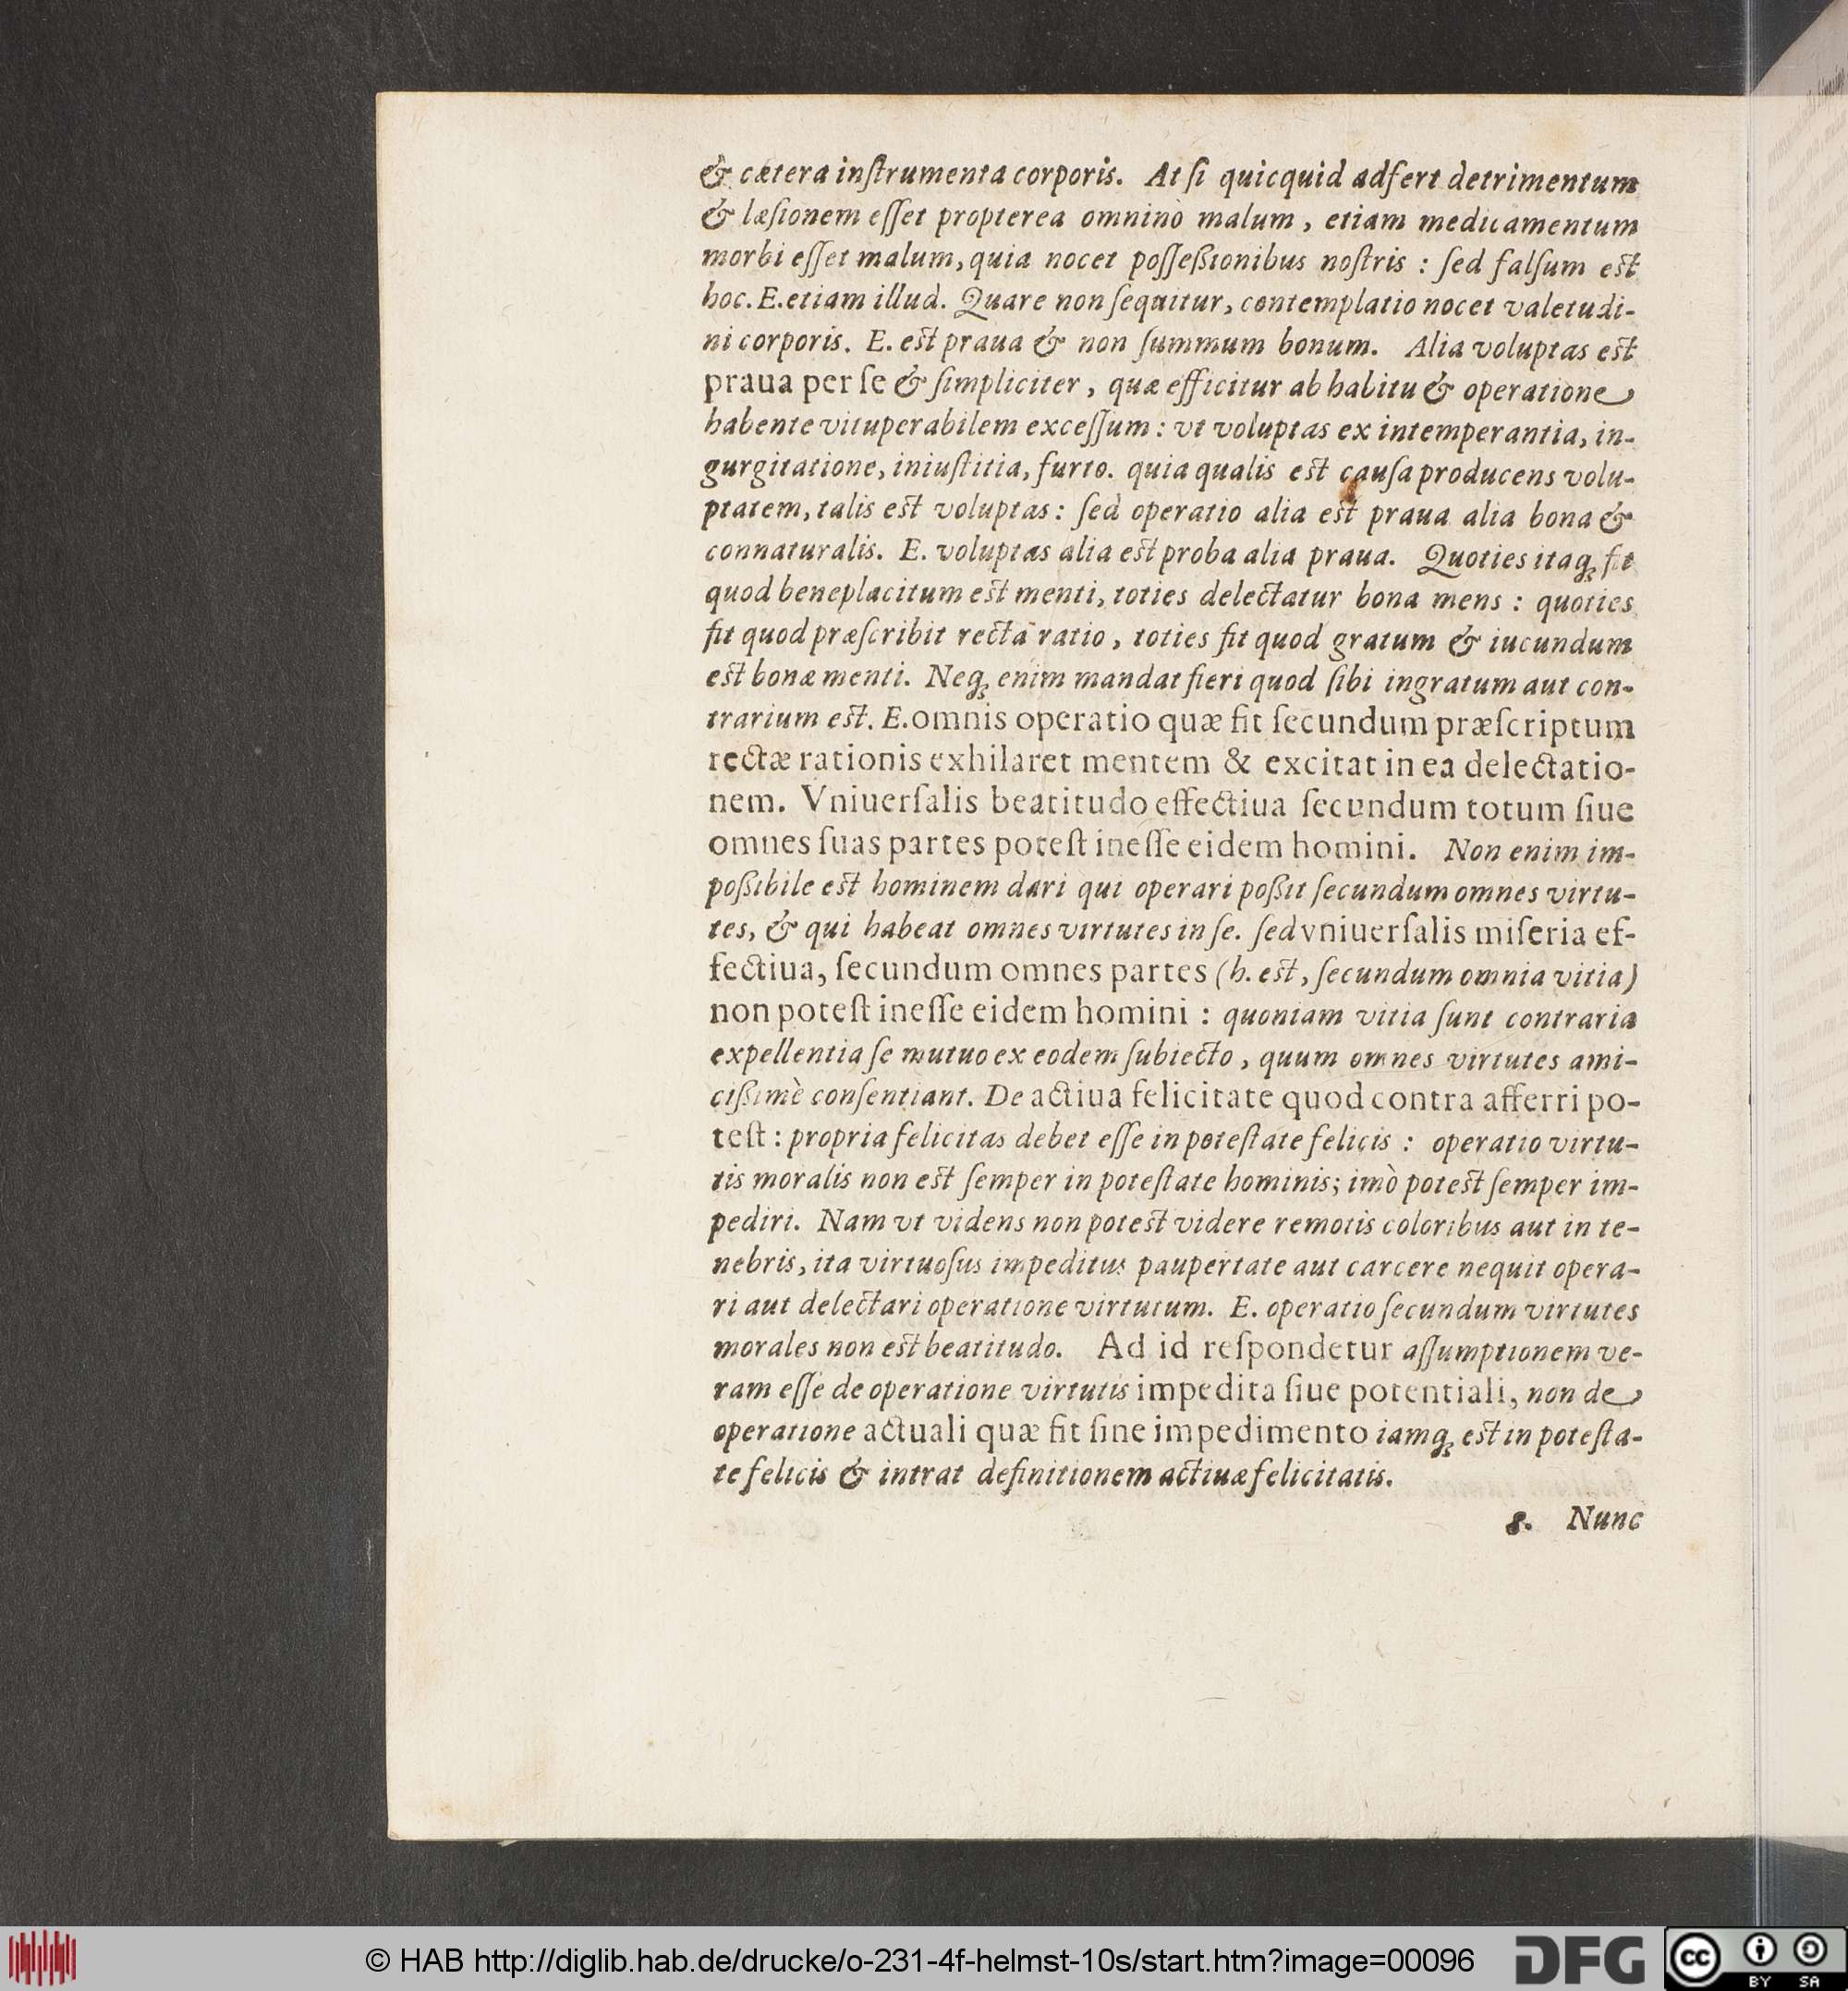 & cætera inſtrumenta corporis. At ſi quicquid adfert detrimentum
& læſionem eſſet propterea omninò malum, etiam medicamentum
morbi eſſet malum, quia nocet poſſeßionibus noſtris : ſed falſum eſt
hoc. E. etiam illud. Quare non ſequitur, contemplatio nocet valetudi-
ni corporis. E. eſt praua & non ſummum bonum. Alia voluptas eſt
praua per ſe & ſimpliciter, quæ efficitur ab habitu & operatione
habente vituperabilem exceſſum : vt voluptas ex intemperantia, in-
gurgitatione, iniuſtitia, furto. quia qualis eſt cauſa producens volu-
ptatem, talis eſt voluptas : ſed operatio alia eſt praua alia bona &
connaturalis. E. voluptas alia eſt proba alia praua. Quoties itaq; fit
quod beneplacitum eſt menti, toties delectatur bona mens : quoties
fit quod præſcribit recta ratio, toties fit quod gratum & iucundum
eſt bonæ menti. Neq; enim mandat fieri quod ſibi ingratum aut con-
trarium eſt. E. omnis operatio quæ fit ſecundum præſcriptum
rectæ rationis exhilaret mentem & excitat in ea delectatio-
nem. Vniuerſalis beatitudo effectiua ſecundum totum ſiue
omnes ſuas partes poteſt ineſſe eidem homini. Non enim im-
poßibile eſt hominem dari qui operari poßit ſecundum omnes virtu-
tes, & qui habeat omnes virtutes in ſe. ſed vniuerſalis miſeria ef-
fectiua, ſecundum omnes partes (h. eſt, ſecundum omnia vitia)
non poteſt ineſſe eidem homini : quoniam vitia ſunt contraria
expellentia ſe mutuo ex eodem ſubiecto, quum omnes virtutes ami-
cißimè conſentiant. De actiua felicitate quod contra afferri po-
teſt : propria felicitas debet eſſe in poteſtate felicis : operatio virtu-
tis moralis non eſt ſemper in poteſtate hominis; imò poteſt ſemper im-
pediri. Nam vt videns non poteſt videre remotis coloribus aut in te-
nebris, ita virtuoſus impeditus paupertate aut carcere nequit opera-
ri aut delectari operatione virtutum. E. operatio ſecundum virtutes
morales non eſt beatitudo. Ad id reſpondetur aſſumptionem ve-
ram eſſe de operatione virtutis impedita ſiue potentiali, non de
operatione actuali quæ fit ſine impedimento iamq; eſt in poteſta-
te felicis & intrat definitionem actiuæ felicitatis.
8. Nunc
© HAB http://diglib.hab.de/drucke/o-231-4f-helmst-10s/start.htm?image=00096
DFG
cc BY SA